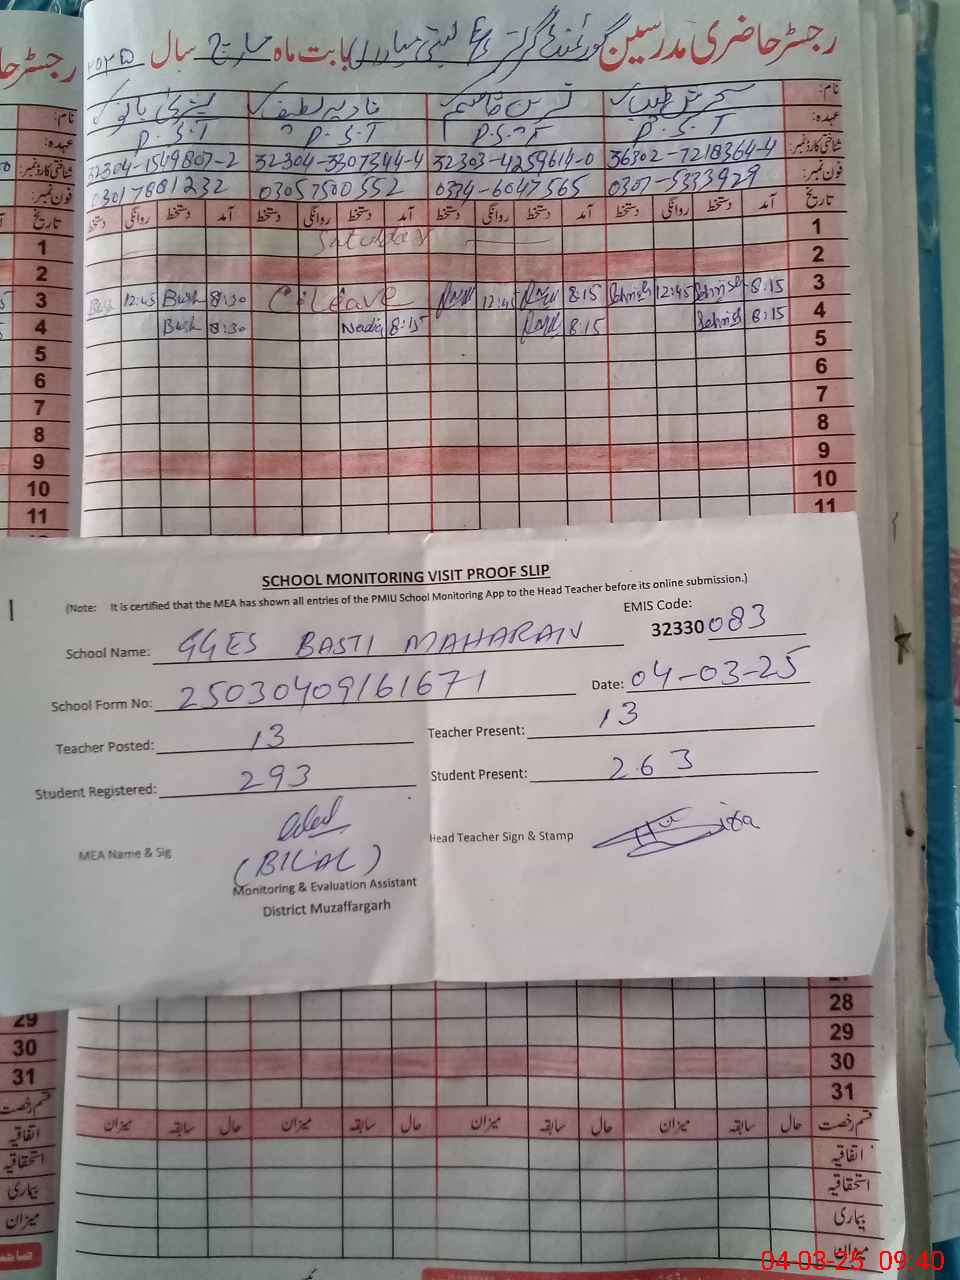 رجسٹر حاضری مدرسین گورنمنٹ گرلز E/S بستی مہاراں بابت ماہ مارچ سال ۲۰۲۵
نام: سحرش طیب نادیہ لطیف بشریٰ بانو
عہدہ: P.S.T P.S.T P.S.T P.S.T
شناختی کارڈ نمبر: 36302-7218364-4 32303-4259614-0 32304-3307344-4 32304-1549807-2
فون نمبر: 0307-5333929 0334-6047565 03057500552 03017881232
تاریخ آمد دستخط روانگی دستخط آمد دستخط روانگی دستخط آمد دستخط روانگی دستخط آمد دستخط روانگی دستخط تاریخ
1 Saturday 1
2 2
3 12:45 Bush 8:30 C-Leave 12:45 8:15 Sehrish 12:45 Sehrish 8:15 3
4 Bush 8:30 Nadia 8:15 8:15 Sehrish 8:15 4
5 5
6 6
7 7
8 8
9 9
10 10
11 11
SCHOOL MONITORING VISIT PROOF SLIP
(Note: It is certified that the MEA has shown all entries of the PMIU School Monitoring App to the Head Teacher before its online submission.)
EMIS Code:
School Name: GGES BASTI MAHARAN 32330083
School Form No: 25030409161671 Date: 04-03-25
Teacher Posted: 13 Teacher Present: 13
Student Registered: 293 Student Present: 263
MEA Name & Sig Head Teacher Sign & Stamp
(BILAL)
Monitoring & Evaluation Assistant
District Muzaffargarh
28
29 29
30 30
31 31
قسم رخصت حال سابقہ میزان حال سابقہ میزان حال سابقہ میزان حال سابقہ میزان قسم رخصت
اتفاقیہ اتفاقیہ
استحقاقیہ استحقاقیہ
بیماری بیماری
میزان میزان
04-03-25 09:40